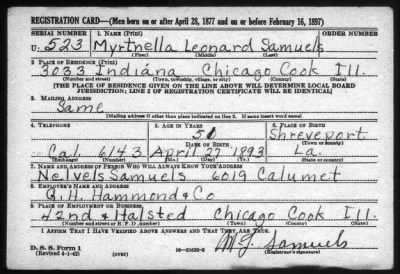 REGISTRATION CARD—(Men born on or after April 28, 1877 and on or before February 16, 1897)
SERIAL NUMBER 1. NAME (Print) ORDER NUMBER
U. 523 Myrtnella Leonard Samuels
(First) (Middle) (Last)
2. PLACE OF RESIDENCE (Print)
3033 Indiana Chicago Cook Ill.
(Number and street) (Town, township, village, or city) (County) (State)
[THE PLACE OF RESIDENCE GIVEN ON THE LINE ABOVE WILL DETERMINE LOCAL BOARD
JURISDICTION; LINE 2 OF REGISTRATION CERTIFICATE WILL BE IDENTICAL]
3. MAILING ADDRESS
Same
[Mailing address if other than place indicated on line 2. If same insert word same]
4. TELEPHONE 5. AGE IN YEARS 6. PLACE OF BIRTH
50 Shreveport
DATE OF BIRTH (Town or county)
Cal. 6143 April 27 1893 La.
(Exchange) (Number) (Mo.) (Day) (Yr.) (State or country)
7. NAME AND ADDRESS OF PERSON WHO WILL ALWAYS KNOW YOUR ADDRESS
Nelvels Samuels 6019 Calumet
8. EMPLOYER'S NAME AND ADDRESS
G. H. Hammond & Co
9. PLACE OF EMPLOYMENT OR BUSINESS
42nd & Halsted Chicago Cook Ill.
(Number and street or R. F. D. number) (Town) (County) (State)
I AFFIRM THAT I HAVE VERIFIED ABOVE ANSWERS AND THAT THEY ARE TRUE.
D. S. S. Form 1
(Revised 4-1-42) (over) 16—21630-2 Samuels
(Registrant's signature)